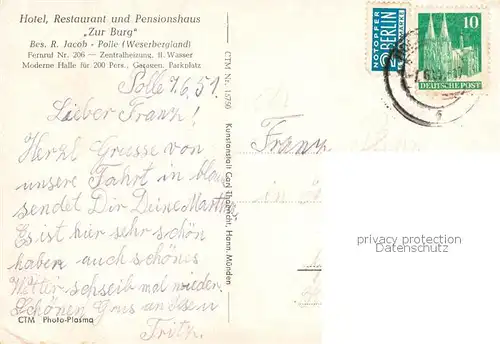 Hotel, Restaurant und Pensionshaus
„Zur Burg"
Bes. R. Jacob - Polle (Weserbergland)
Fernruf Nr. 206 — Zentralheizung, fl. Wasser
Moderne Halle für 200 Pers., Garagen, Parkplatz
Polle 7.6.51.
Lieber Franz!
Herzl Grüsse von
unsere Fahrt in blaue
sendet Dir Deine Martha
Es ist hier sehr schön
haben auch schönes
Wetter schreib mal wieder.
Schönen Grus an
Fritz.
CTM Photo-Plasma
CTM Nr. 15750
Kunstanstalt Carl Thoericht, Hann.Münden
NOTOPFER
2 BERLIN
STEUERMARKE
10
DEUTSCHE POST
Franz
in
privacy protection
Datenschutz